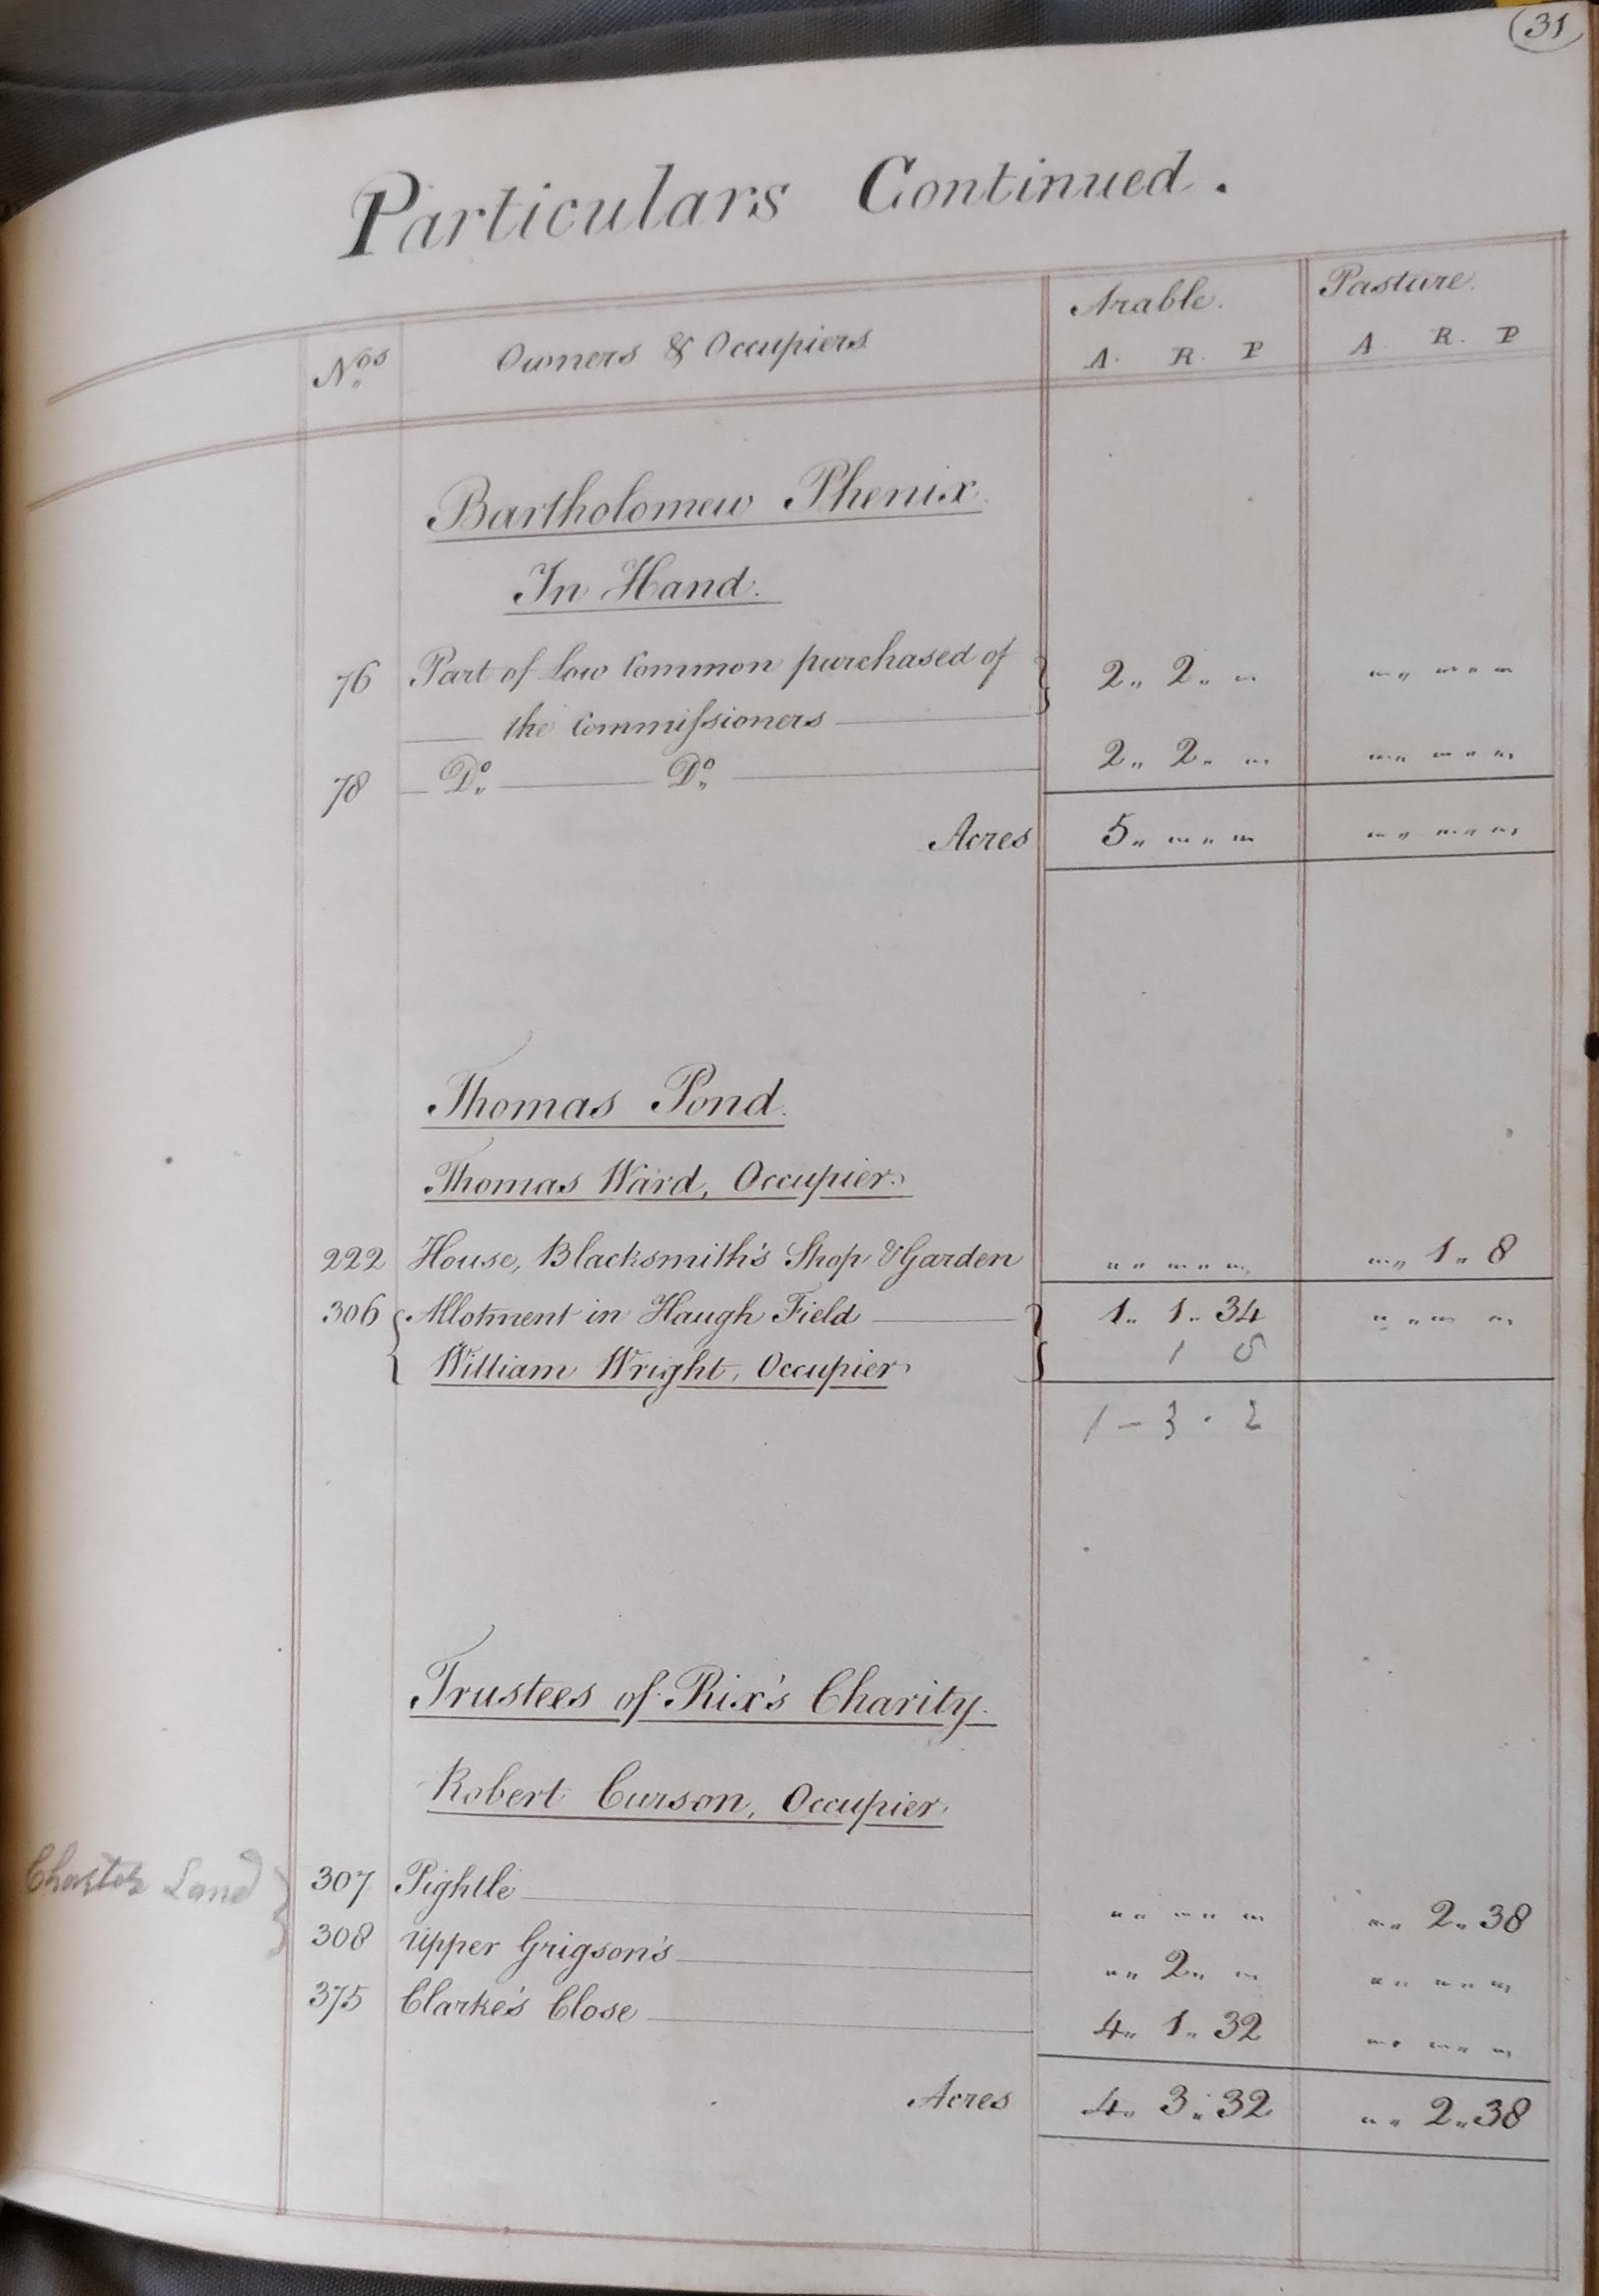 31
Particulars Continued.
Nos Owners & Occupiers Arable. Pasture.
A. R. P A. R. P
Bartholomew Phenix.
In Hand.
76 Part of Low Common purchased of } 2 „ 2 „ „ „ „ „
the Commissioners
78 Do. Do. 2 „ 2 „ „ „ „ „
Acres 5 „ „ „ „ „ „
Thomas Pond.
Thomas Ward, Occupier.
222 House, Blacksmith's Shop & Garden „ „ „ „ 1 „ 8
306 { Allotment in Haugh Field } 1 „ 1 „ 34 „ „ „
William Wright, Occupier 1 8
1 - 3 . 2
Trustees of Rix's Charity.
Robert Curson, Occupier.
Land } 307 Pightle „ „ „ „ 2 „ 38
308 Upper Grigson's „ „ 2 „ „ „ „ „
375 Clarke's Close 4 „ 1 „ 32 „ „ „
Acres 4 „ 3 „ 32 „ „ 2 „ 38